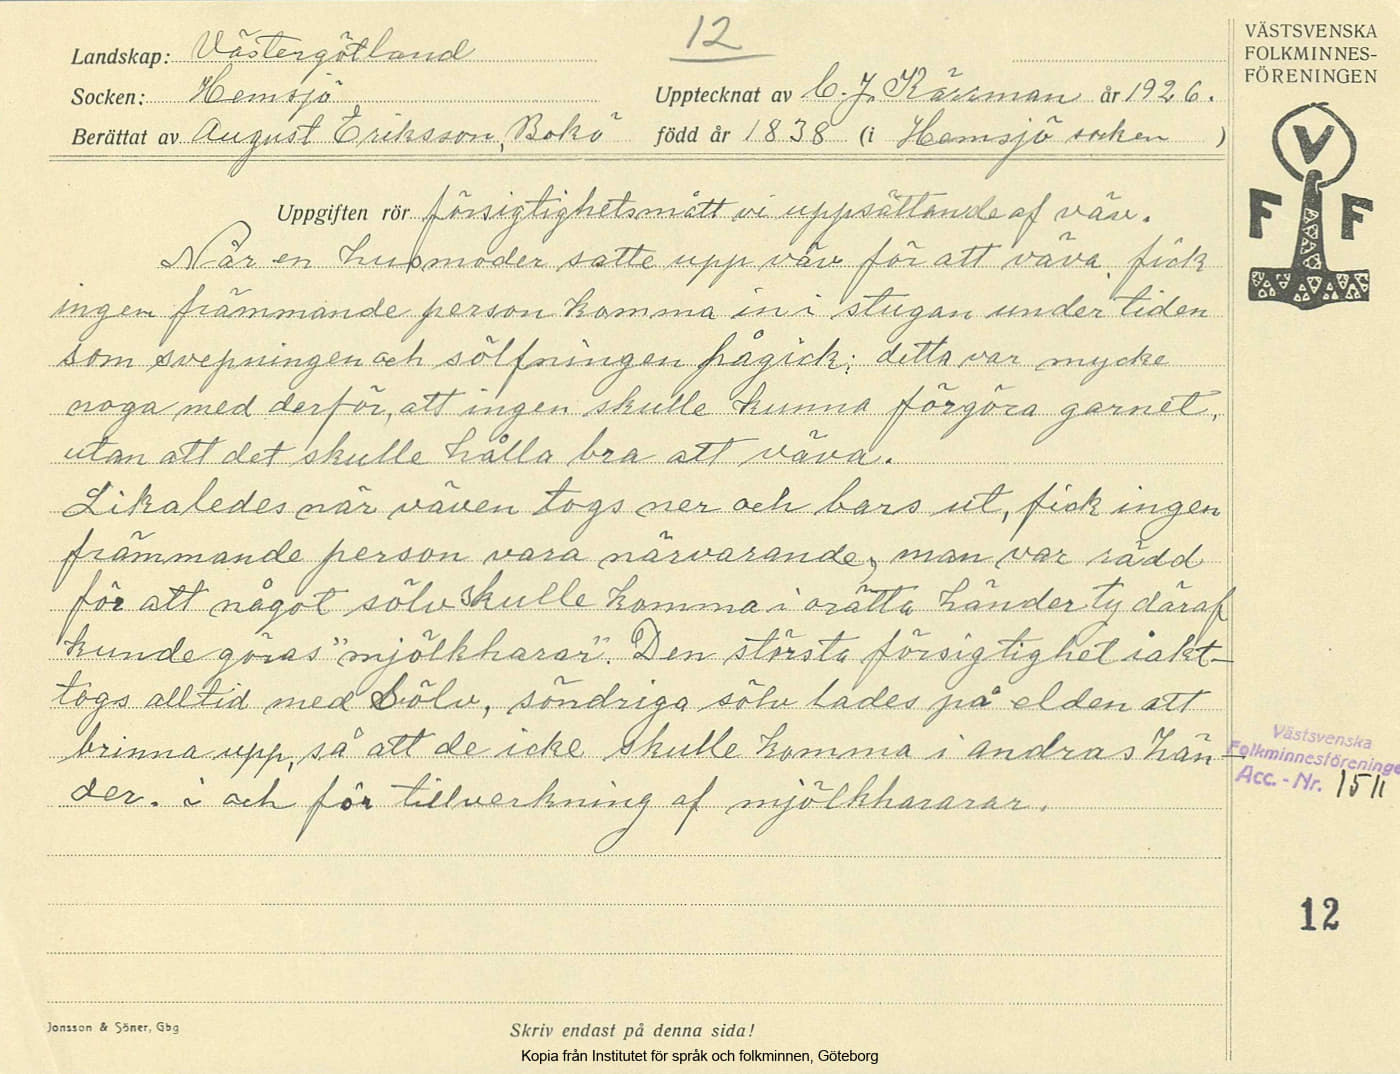 12
Landskap: Västergötland
Socken: Hemsjö
Upptecknat av C. J. Kärrman år 1926.
Berättat av August Eriksson, Bokö född år 1838 (i Hemsjö socken )
Uppgiften rör försigtighetsmått vi uppsättande af väv.
När en husmoder satte upp väv för att väva, fick
ingen främmande person komma in i stugan under tiden
som svepningen och sölfningen pågick; detta var mycke
noga med derför, att ingen skulle kunna förgöra garnet,
utan att det skulle hålla bra att väva.
Likaledes när väven togs ner och bars ut, fick ingen
främmande person vara närvarande, man var rädd
för att något sölv skulle komma i orätta händer ty däraf
kunde göras "mjölkharar". Den största försigtighet iakt-
togs alltid med Sölv, söndriga sölv lades på elden att
brinna upp, så att de icke skulle komma i andras hän-
der. i och för tillverkning af mjölkhararar.
VÄSTSVENSKA
FOLKMINNES-
FÖRENINGEN
V
F F
Västsvenska
Folkminnesföreningen
Acc. - Nr. 1511
12
Jonsson & Söner, Gbg
Skriv endast på denna sida!
Kopia från Institutet för språk och folkminnen, Göteborg